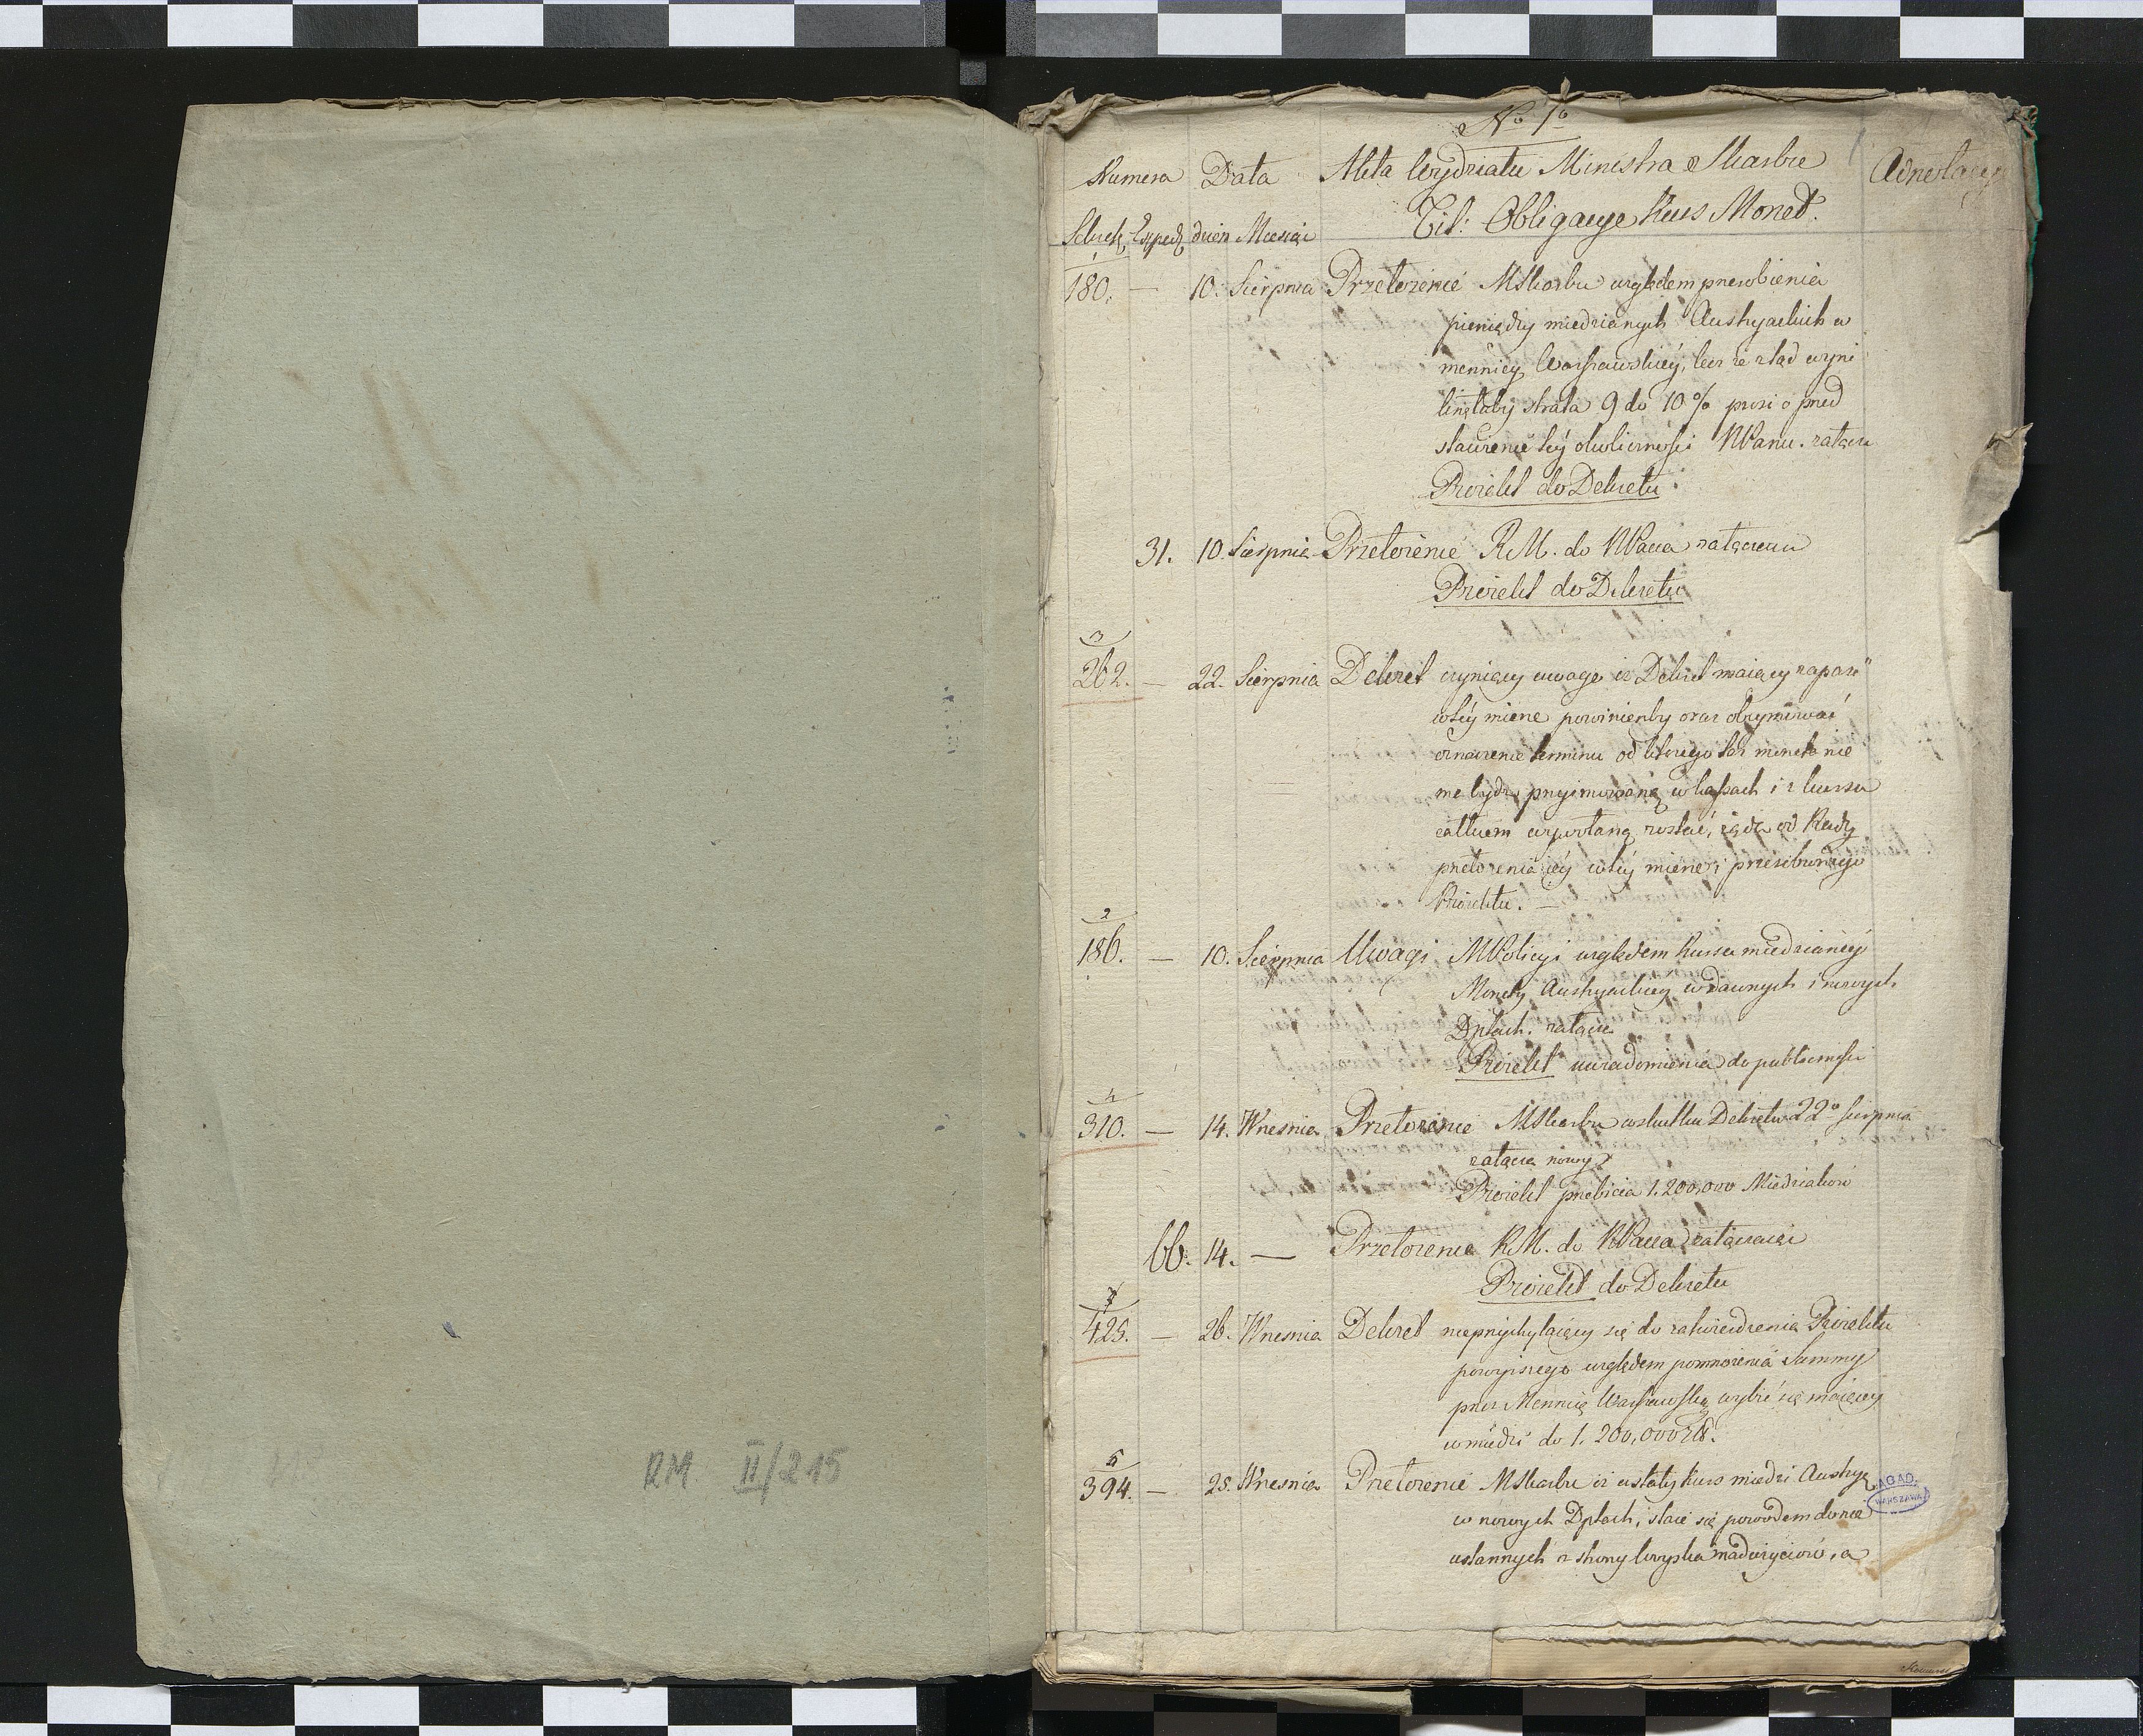 RM. II/215
No 1o
Numera Data Akta Wydziału Ministra Skarbu Adnotacye
Tit: Obligacye Kurs Monet.
Exped. dzień Miesiąc
1
180. — 10. Sierpnia Przełożenie MSkarbu względem przerobienia
pieniędzy miedzianych Austryackich w
mennicy Warszawskiey, lecz że ztąd wyni
knęłaby strata 9 do 10% prosi o przed
stawienie tey okoliczności NPanu. załącza
Proiekt do Dekretu.
31. 10. Sierpnia Przełożenie R.M. do NPana załączaiące
Proiekt do Dekretu
3
262. — 22. Sierpnia Dekret czyniący uwagę iż Dekret maiący zapaść
w tey mierze powinienby oraz obeymować
oznaczenie terminu od którego ta moneta nie
ma bydź przyimowaną w kassach i z kursu
całkiem wywołaną zostać, żąda od Rady
przełożenia iey w tey mierze i przesłania
Proiektu. —
2
186. — 10. Sierpnia Uwagi MPolicyi względem Kursu miedzianey
Monety Austryackiey w dawnych i nowych
Dptach. załącza
Proiekt uwiadomienia do publiczności
4
310. — 14. Września Przełożenie MSkarbu w skutku Dekretu 22o Sierpnia
załącza nowy
Proiekt przebicia 1.200,000 Miedziaków
66. 14. — Przełożenie R.M. do NPana załączaiące
Proiekt do Dekretu
425. — 26. Września Dekret nieprzychylaiący się do zatwierdzenia Proiektu
powyższego względem pomnożenia Summy
przez Mennicę Warszawską wybić się maiącey
w miedzi do 1.200,000 Zł.
5
394. — 25. Września Przełożenie MSkarbu iż ustały kurs miedzi Austry.
w nowych Dptach, staie się powodem do nie
ustannych z strony Woyska nadużyciów, a
AGAD
WARSZAWA